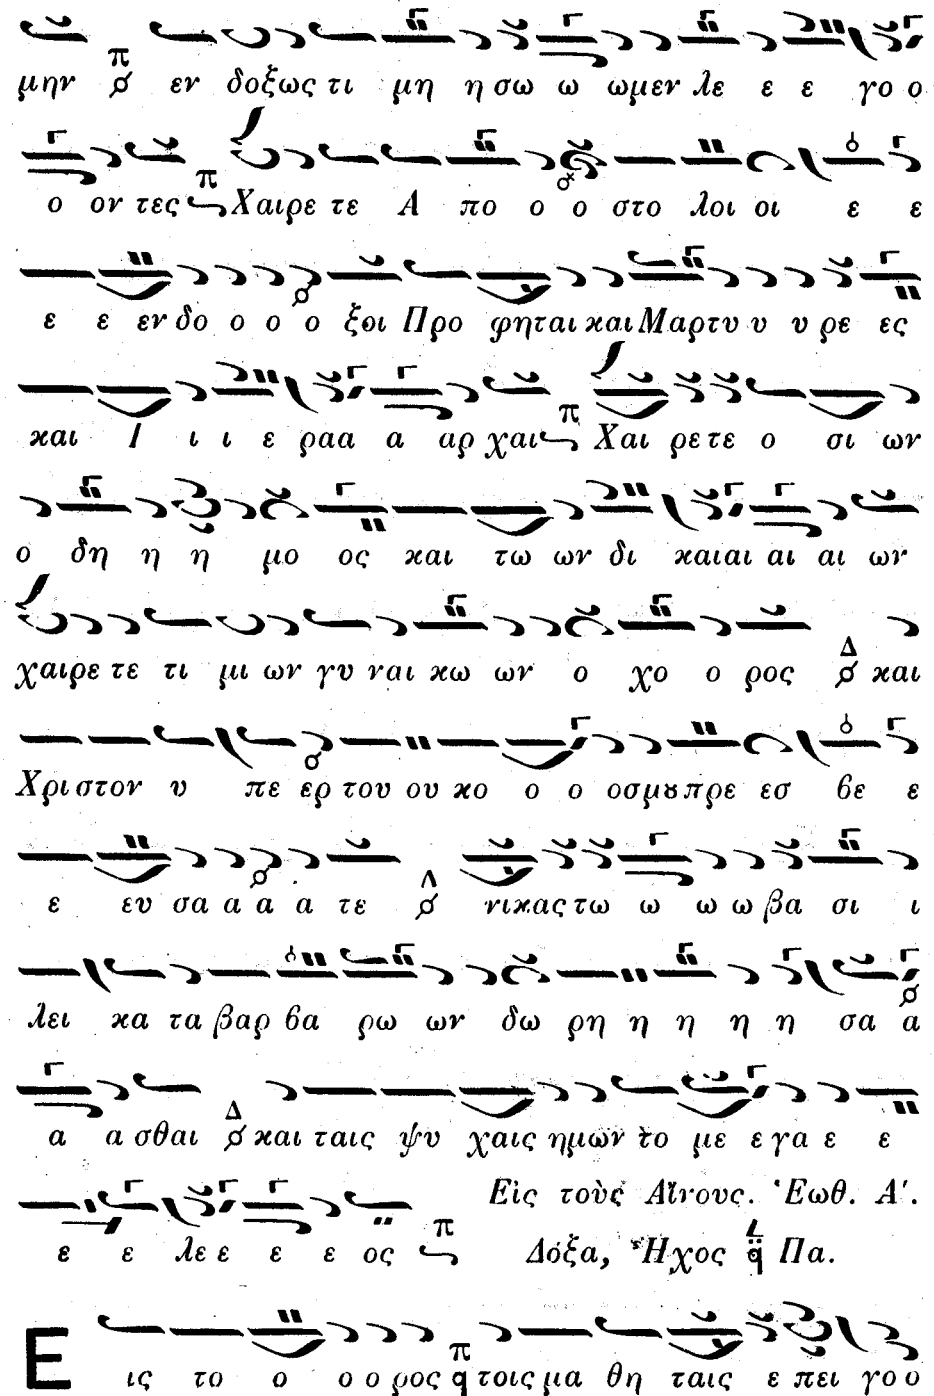 μην π εν δοξως τι μη η σω ω ωμεν λε ε ε γο ο
ο ον τες π Χαιρε τε Α πο ο ο στο λοι οι ε ε
ε ε εν δο ο ο ο ξοι Προ φηται και Μαρτυ υ υ ρε ες
και Ι ι ι ε ραα α αρ χαι π Χαι ρε τε ο σι ων
ο δη η η μο ος και τω ων δι καιαι αι αι ων
χαιρε τε τι μι ων γυ ναι κω ων ο χο ο ρος Δ και
Χρι στον υ πε ερ του ου κο ο ο οσμȣ πρε εσ βε ε
ε ευ σα α α α τε Λ νικας τω ω ω ω βα σι ι
λει κα τα βαρ βα ρω ων δω ρη η η η η σα α
α α σθαι Δ και ταις ψυ χαις ημων το με ε γα ε ε
Εἰς τοὺς Αἴνους. Ἑωθ. Α'.
ε ε λε ε ε ε ος π Δόξα, Ἦχος q Πα.
Ε ις το ο ο ο ρος π q τοις μα θη ταις ε πει γο ο